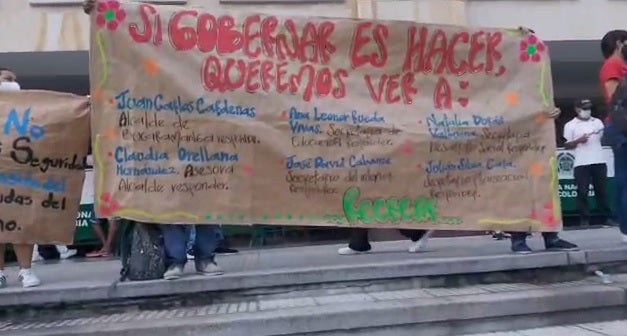 SI GOBERNAR ES HACER,
QUEREMOS VER A:
Juan Carlos Cárdenas
Alcalde de
Bucaramanga responder.
Claudia Orellana
Hernández. Asesora
Alcalde responder.
Ana Leonor Rueda
Vivas. Secretaria de
Educación Responder.
José David Cabanzo
Secretario del interior
Responder.
Natalia Durán
Valbuena. Secretaria
Desarrollo Social Responder.
Julián Silva Cala.
No
Segurida
udas del
no.
NA
COL